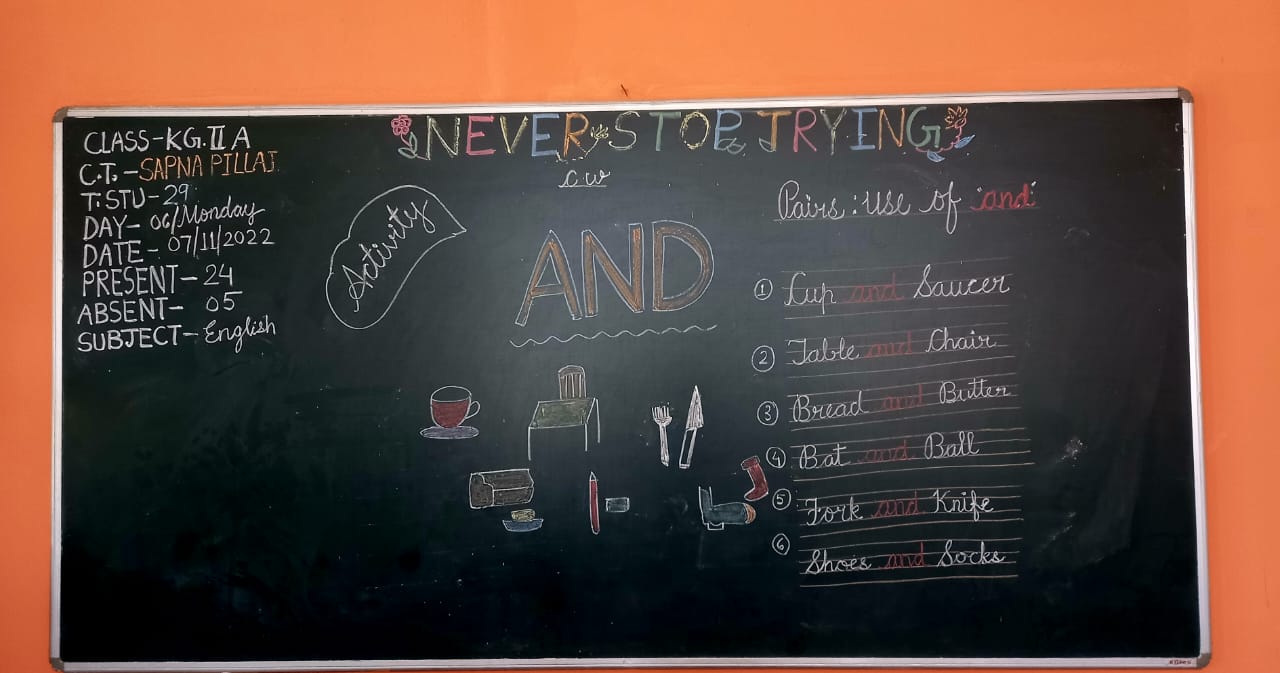 NEVER STOP TRYING
C.W
CLASS-KG.II A
C.T. - SAPNA PILLAI
T.STU - 29
DAY - 06/Monday
DATE - 07/11/2022
PRESENT - 24
ABSENT - 05
SUBJECT - English
Activity
AND
Pairs : Use of 'and'
① Cup and Saucer
② Table and Chair
③ Bread and Butter
④ Bat and Ball
⑤ Fork and Knife
⑥ Shoes and Socks